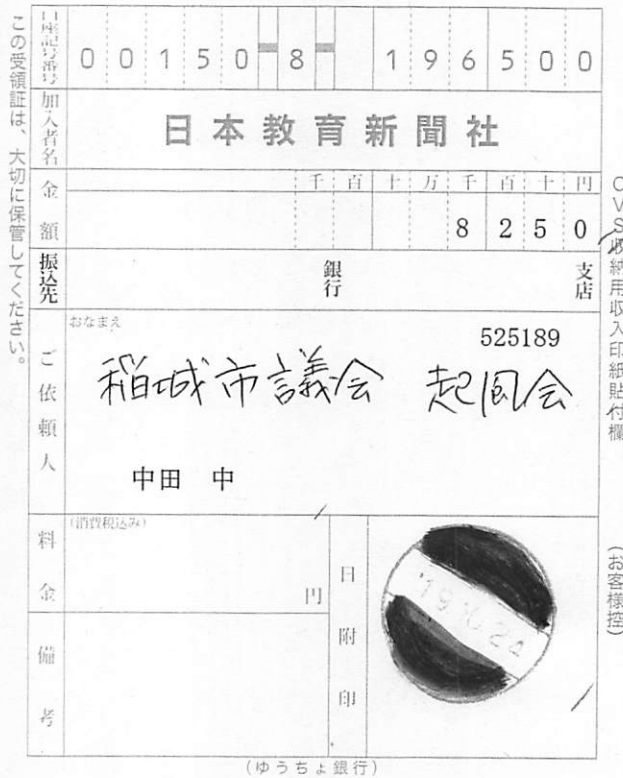 この受領証は、大切に保管してください。
口座記号番号
00150-8-196500
加入者名
日本教育新聞社
金額
千百十万千百十円
8250
振込先
銀行
支店
ご依頼人
おなまえ
525189
稲城市議会 起風会
中田 中
料金
(消費税込み)
円
日附印
'19.10.24
備考
CVS収納用収入印紙貼付欄
(お客様控)
(ゆうちょ銀行)